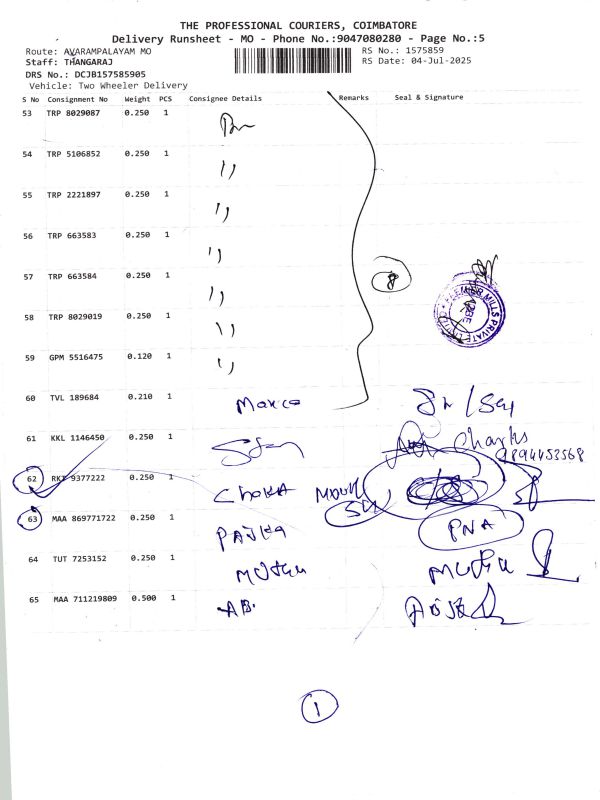 THE PROFESSIONAL COURIERS, COIMBATORE
Delivery Runsheet - MO - Phone No.:9047080280 - Page No.:5
Route: AVARAMPALAYAM MO RS No.: 1575859
Staff: THANGARAJ RS Date: 04-Jul-2025
DRS No.: DCJB157585905
Vehicle: Two Wheeler Delivery
S No Consignment No Weight PCS Consignee Details Remarks Seal & Signature
53 TRP 8029087 0.250 1
54 TRP 5106852 0.250 1 ,,
55 TRP 2221897 0.250 1 ,,
56 TRP 663583 0.250 1 ,,
57 TRP 663584 0.250 1 ,, 8
58 TRP 8029019 0.250 1 ,,
59 GPM 5516475 0.120 1 ,,
MILLS PRIVATE LIMITED
60 TVL 189684 0.210 1
61 KKL 1146450 0.250 1 Charls
9894453568
62 RKT 9377222 0.250 1
63 MAA 869771722 0.250 1 PNA
64 TUT 7253152 0.250 1 Muthu Muthu
65 MAA 711219809 0.500 1 AB.
1